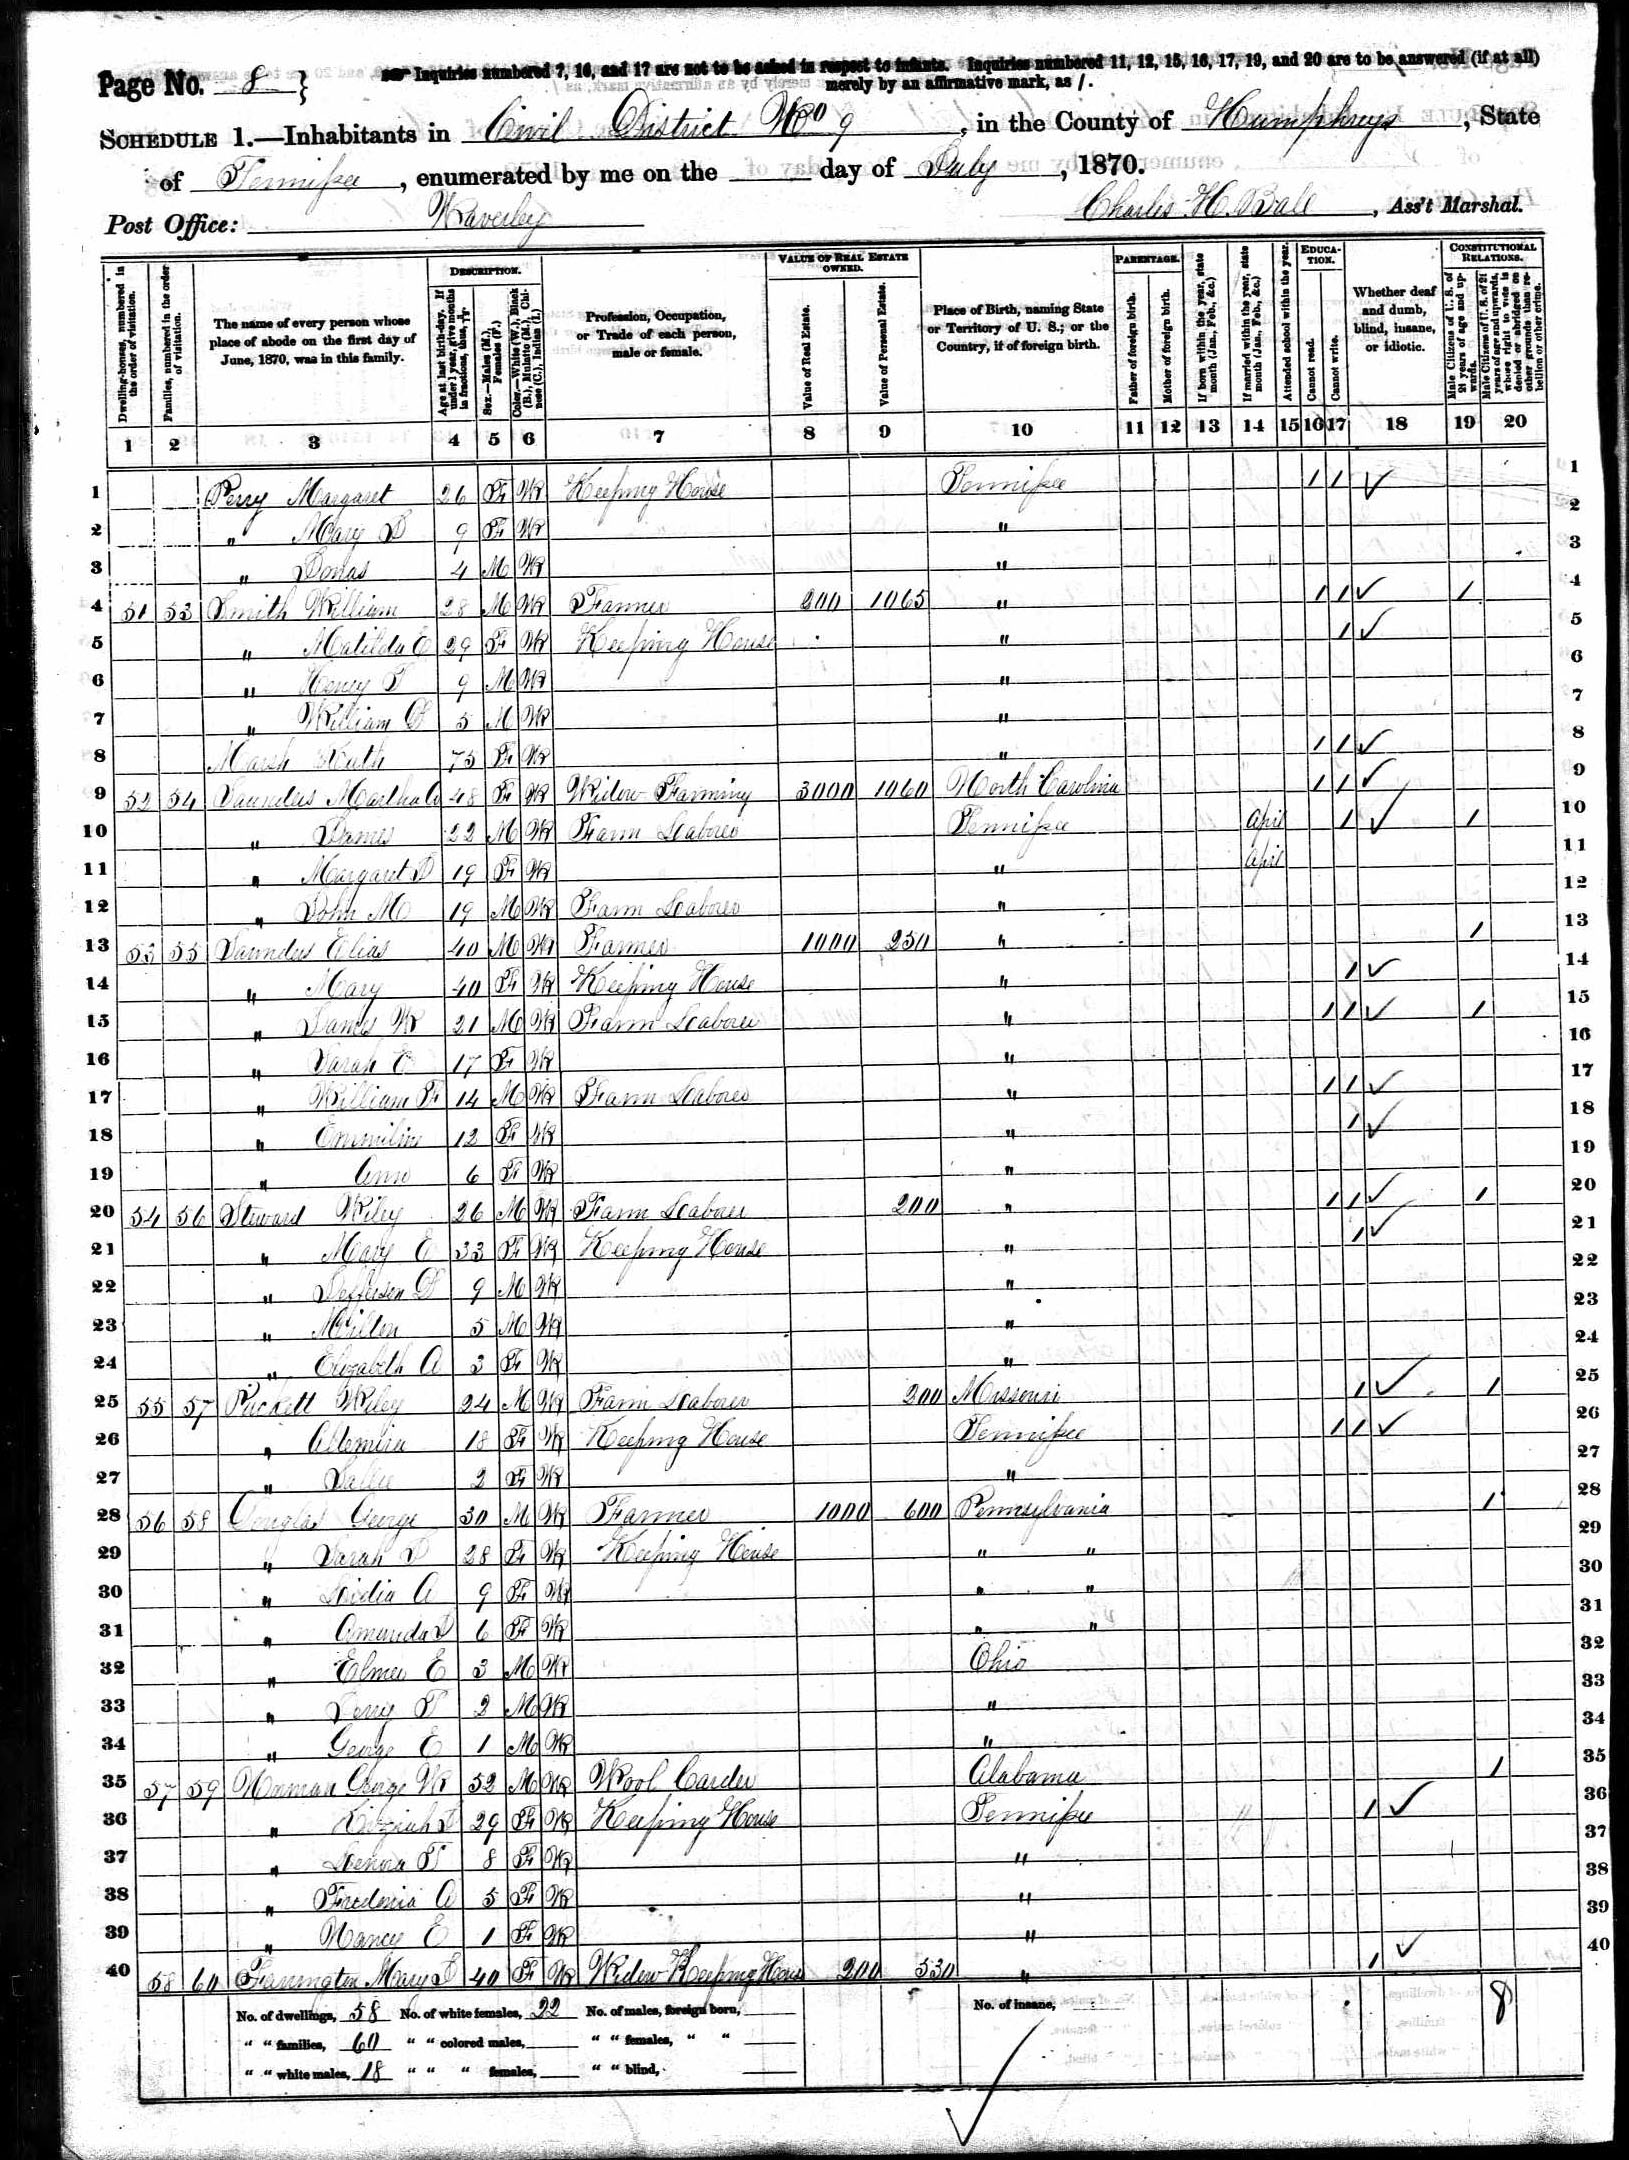 Page No. 8
Inquiries numbered 7, 16, and 17 are not to be asked in respect to infants. Inquiries numbered 11, 12, 15, 16, 17, 19, and 20 are to be answered (if at all)
merely by an affirmative mark, as /.
SCHEDULE 1.—Inhabitants in Civil District No 9, in the County of Humphreys, State
of Tennessee, enumerated by me on the day of July, 1870.
Post Office: Waverley
Charles H. Ball, Ass't Marshal.
Dwelling-houses, numbered in the order of visitation.
Families, numbered in the order of visitation.
The name of every person whose place of abode on the first day of June, 1870, was in this family.
DESCRIPTION.
Age at last birth-day. If under 1 year, give months in fractions, thus,
Sex.—Males (M.), Females (F.)
Color.—White (W.), Black (B.), Mulatto (M.), Chinese (C.), Indian (I.)
Profession, Occupation, or Trade of each person, male or female.
VALUE OF REAL ESTATE OWNED.
Value of Real Estate.
Value of Personal Estate.
Place of Birth, naming State or Territory of U. S.; or the Country, if of foreign birth.
PARENTAGE.
Father of foreign birth.
Mother of foreign birth.
If born within the year, state month (Jan., Feb., &c.)
If married within the year, state month (Jan., Feb., &c.)
Attended school within the year.
EDUCATION.
Cannot read.
Cannot write.
Whether deaf and dumb, blind, insane, or idiotic.
CONSTITUTIONAL RELATIONS.
Male Citizens of U. S. of 21 years of age and upwards.
Male Citizens of U. S. of 21 years of age and upwards, whose right to vote is denied or abridged on other grounds than rebellion or other crime.
1 2 3 4 5 6 7 8 9 10 11 12 13 14 15 16 17 18 19 20
1 Perry Margaret 26 F W Keeping House Tennessee / / ✓ 1
2 " Mary 9 F W " 2
3 " 4 M W " 3
4 51 53 Smith William 28 M W Farmer 200 1065 " / / ✓ / 4
5 " Matilda C 29 F W Keeping House " / ✓ 5
6 " Henry T 9 M W " 6
7 " William 5 M W " 7
8 Marsh Ruth 75 F W " / / ✓ 8
9 52 54 Saunders Martha 48 F W Widow Farming 3000 1060 North Carolina / / ✓ 9
10 " James 22 M W Farm Laborer Tennessee April / ✓ / 10
11 " Margaret 19 F W " April 11
12 " John M 19 M W Farm Laborer " 12
13 53 55 Saunders Elias 40 M W Farmer 1000 250 " / 13
14 " Mary 40 F W Keeping House " / ✓ 14
15 " James W 21 M W Farm Laborer " / / ✓ / 15
16 " Sarah E 17 F W " 16
17 " William F 14 M W Farm Laborer " / / ✓ 17
18 " Emmiline 12 F W " / ✓ 18
19 " Ann 6 F W " 19
20 54 56 Steward Wiley 26 M W Farm Laborer 200 " / / ✓ / 20
21 " Mary E 33 F W Keeping House " / ✓ 21
22 " Jefferson D 9 M W " 22
23 " Millen 5 M W " 23
24 " Elizabeth A 3 F W " 24
25 55 57 Puckett Wiley 24 M W Farm Laborer 200 Missouri / ✓ / 25
26 " Altemira 18 F W Keeping House Tennessee / / ✓ 26
27 " Sallie 2 F W " 27
28 56 58 Douglas George 30 M W Farmer 1000 600 Pennsylvania / 28
29 " Sarah 28 F W Keeping House " " 29
30 " Lividia A 9 F W " " 30
31 " Amanda 6 F W " " 31
32 " Elmer E 3 M W Ohio 32
33 " Perry T 2 M W " 33
34 " George E 1 M W " 34
35 57 59 Norman George W 52 M W Wool Carder Alabama / 35
36 " Kizziah 29 F W Keeping House Tennessee / ✓ 36
37 " 8 F W " 37
38 " Fredonia A 5 F W " 38
39 " Nancy E 1 F W " 39
40 58 60 Farrington Mary 40 F W Widow Keeping House 200 530 " / ✓ 40
No. of dwellings, 58 No. of white females, 22 No. of males, foreign born, No. of insane, 8
" " families, 60 " " colored males, " " females, " "
" " white males, 18 " " " females, " " blind,